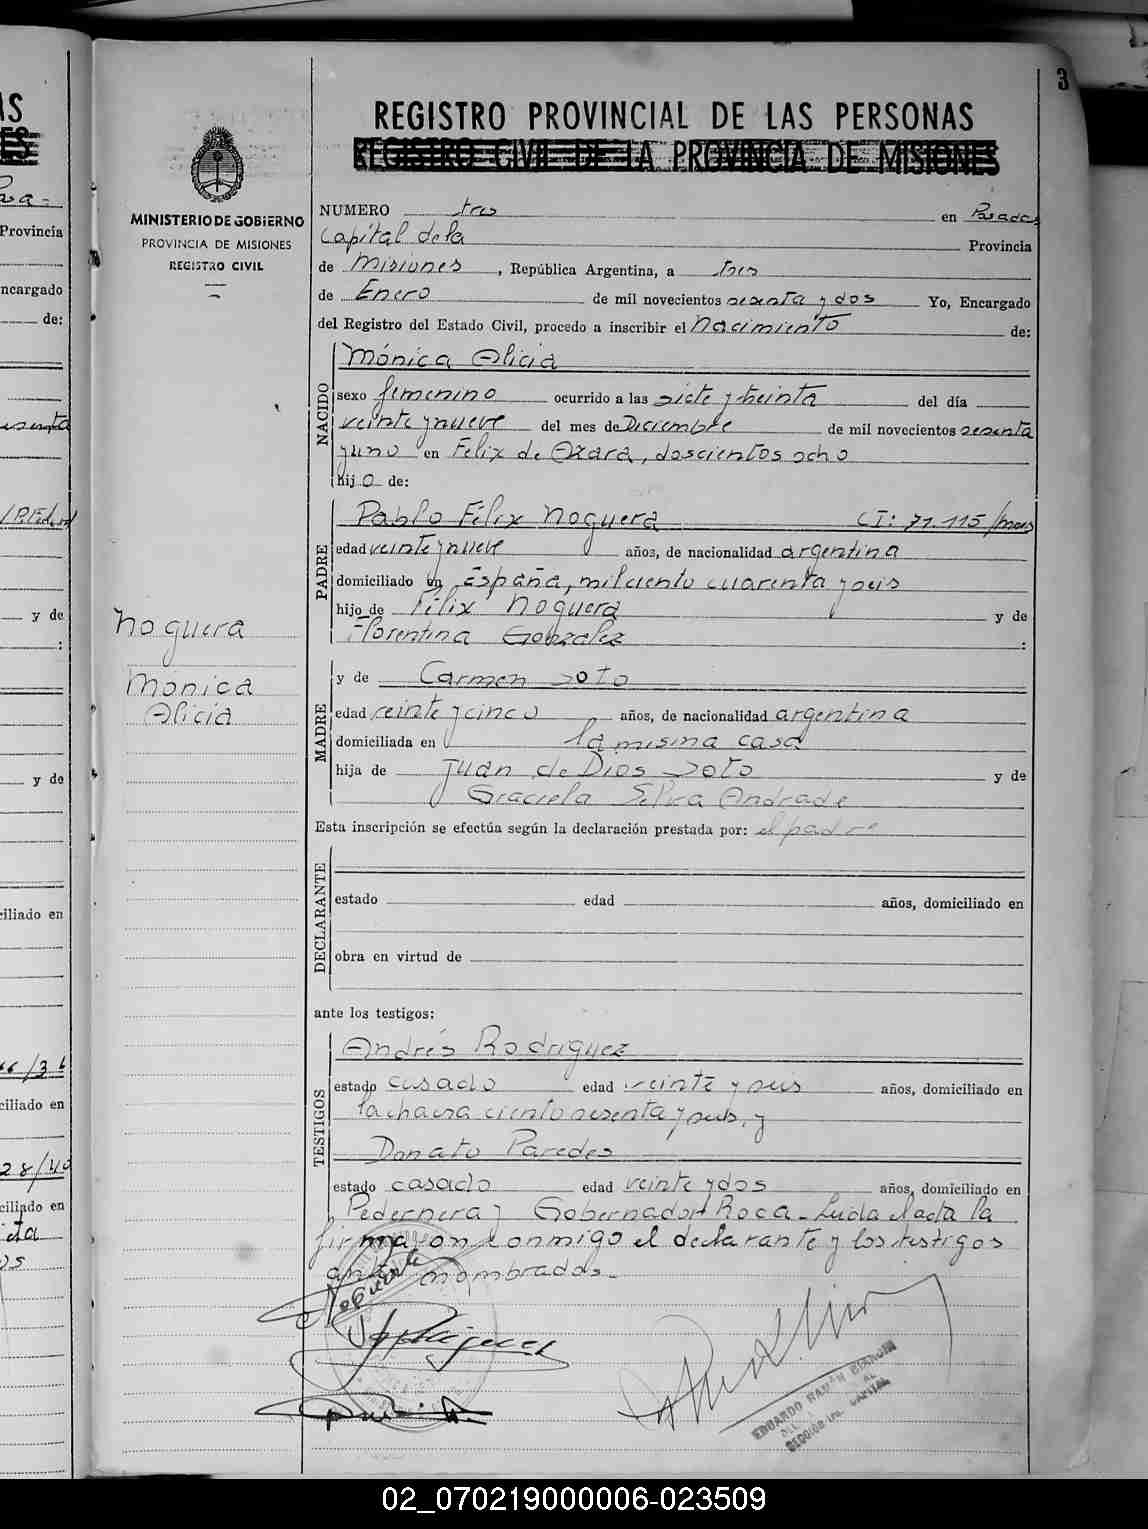 3
REGISTRO PROVINCIAL DE LAS PERSONAS
REGISTRO CIVIL DE LA PROVINCIA DE MISIONES
MINISTERIO DE GOBIERNO
PROVINCIA DE MISIONES
REGISTRO CIVIL
NUMERO tres en Posadas
Capital de la Provincia
de Misiones, República Argentina, a tres
de Enero de mil novecientos sesenta y dos Yo, Encargado
del Registro del Estado Civil, procedo a inscribir el nacimiento de:
NACIDO
Mónica Alicia
sexo femenino ocurrido a las siete y treinta del día
veinte y nueve del mes de Diciembre de mil novecientos sesenta
y uno en Felix de Azara, doscientos ocho
hij o de:
PADRE
Pablo Félix Noguera CI: 71.115/mnes
edad veinte y nueve años, de nacionalidad argentina
domiciliado en España, mil ciento cuarenta y seis
hijo de Félix Noguera y de
Florentina Gonzalez :
MADRE
y de Carmen Soto
edad veinte y cinco años, de nacionalidad argentina
domiciliada en la misma casa
hija de Juan de Dios Soto y de
Graciela Selva Andrade
Noguera
Mónica
Alicia
Esta inscripción se efectúa según la declaración prestada por: el padre
DECLARANTE
estado edad años, domiciliado en
obra en virtud de
ante los testigos:
TESTIGOS
Andrés Rodriguez
estado casado edad veinte y seis años, domiciliado en
la chacra ciento sesenta y seis, y
Donato Paredes
estado casado edad veinte y dos años, domiciliado en
Pedernera y Gobernador Roca - Leida el acta la
firmaron conmigo el declarante y los testigos
antes nombrados.-
Noguera
EDUARDO RAMÓN BIANCHI
CAPITAL
02_070219000006-023509